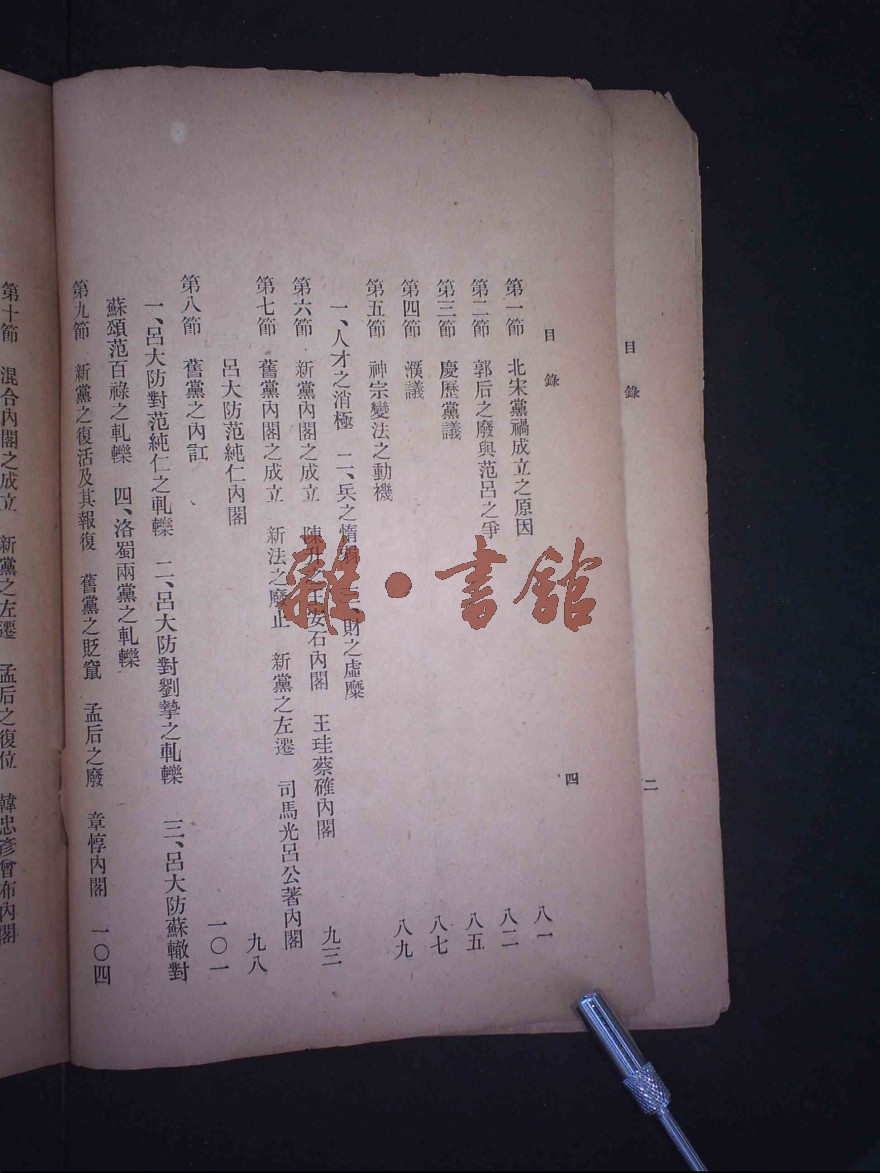 目錄 二
目錄 四
第一節 北宋黨禍成立之原因 八一
第二節 郭后之廢與范呂之爭 八二
第三節 慶歷黨議 八五
第四節 濮議 八七
第五節 神宗變法之動機 八九
一、人才之消極 二、兵之惰弱 、財之虛糜
第六節 新黨內閣之成立 陳升之王安石內閣 王珪蔡確內閣 九三
第七節 舊黨內閣之成立 新法之廢止 新黨之左遷 司馬光呂公著內閣
呂大防范純仁內閣 九八
第八節 舊黨之內訌 一〇一
一、呂大防對范純仁之軋轢 二、呂大防對劉摯之軋轢 三、呂大防蘇轍對
蘇頌范百祿之軋轢 四、洛蜀兩黨之軋轢
第九節 新黨之復活及其報復 舊黨之貶竄 孟后之廢 章惇內閣 一〇四
第十節 混合內閣之成立 新黨之左遷 孟后之復位 韓忠彥曾布內閣
雜·書館